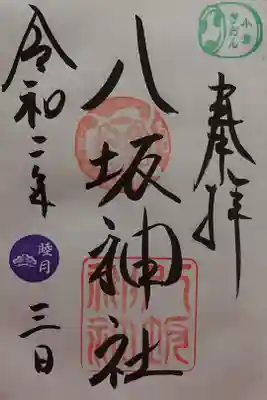 奉拝
八坂神社
令和二年
睦月
三日
八坂
神社